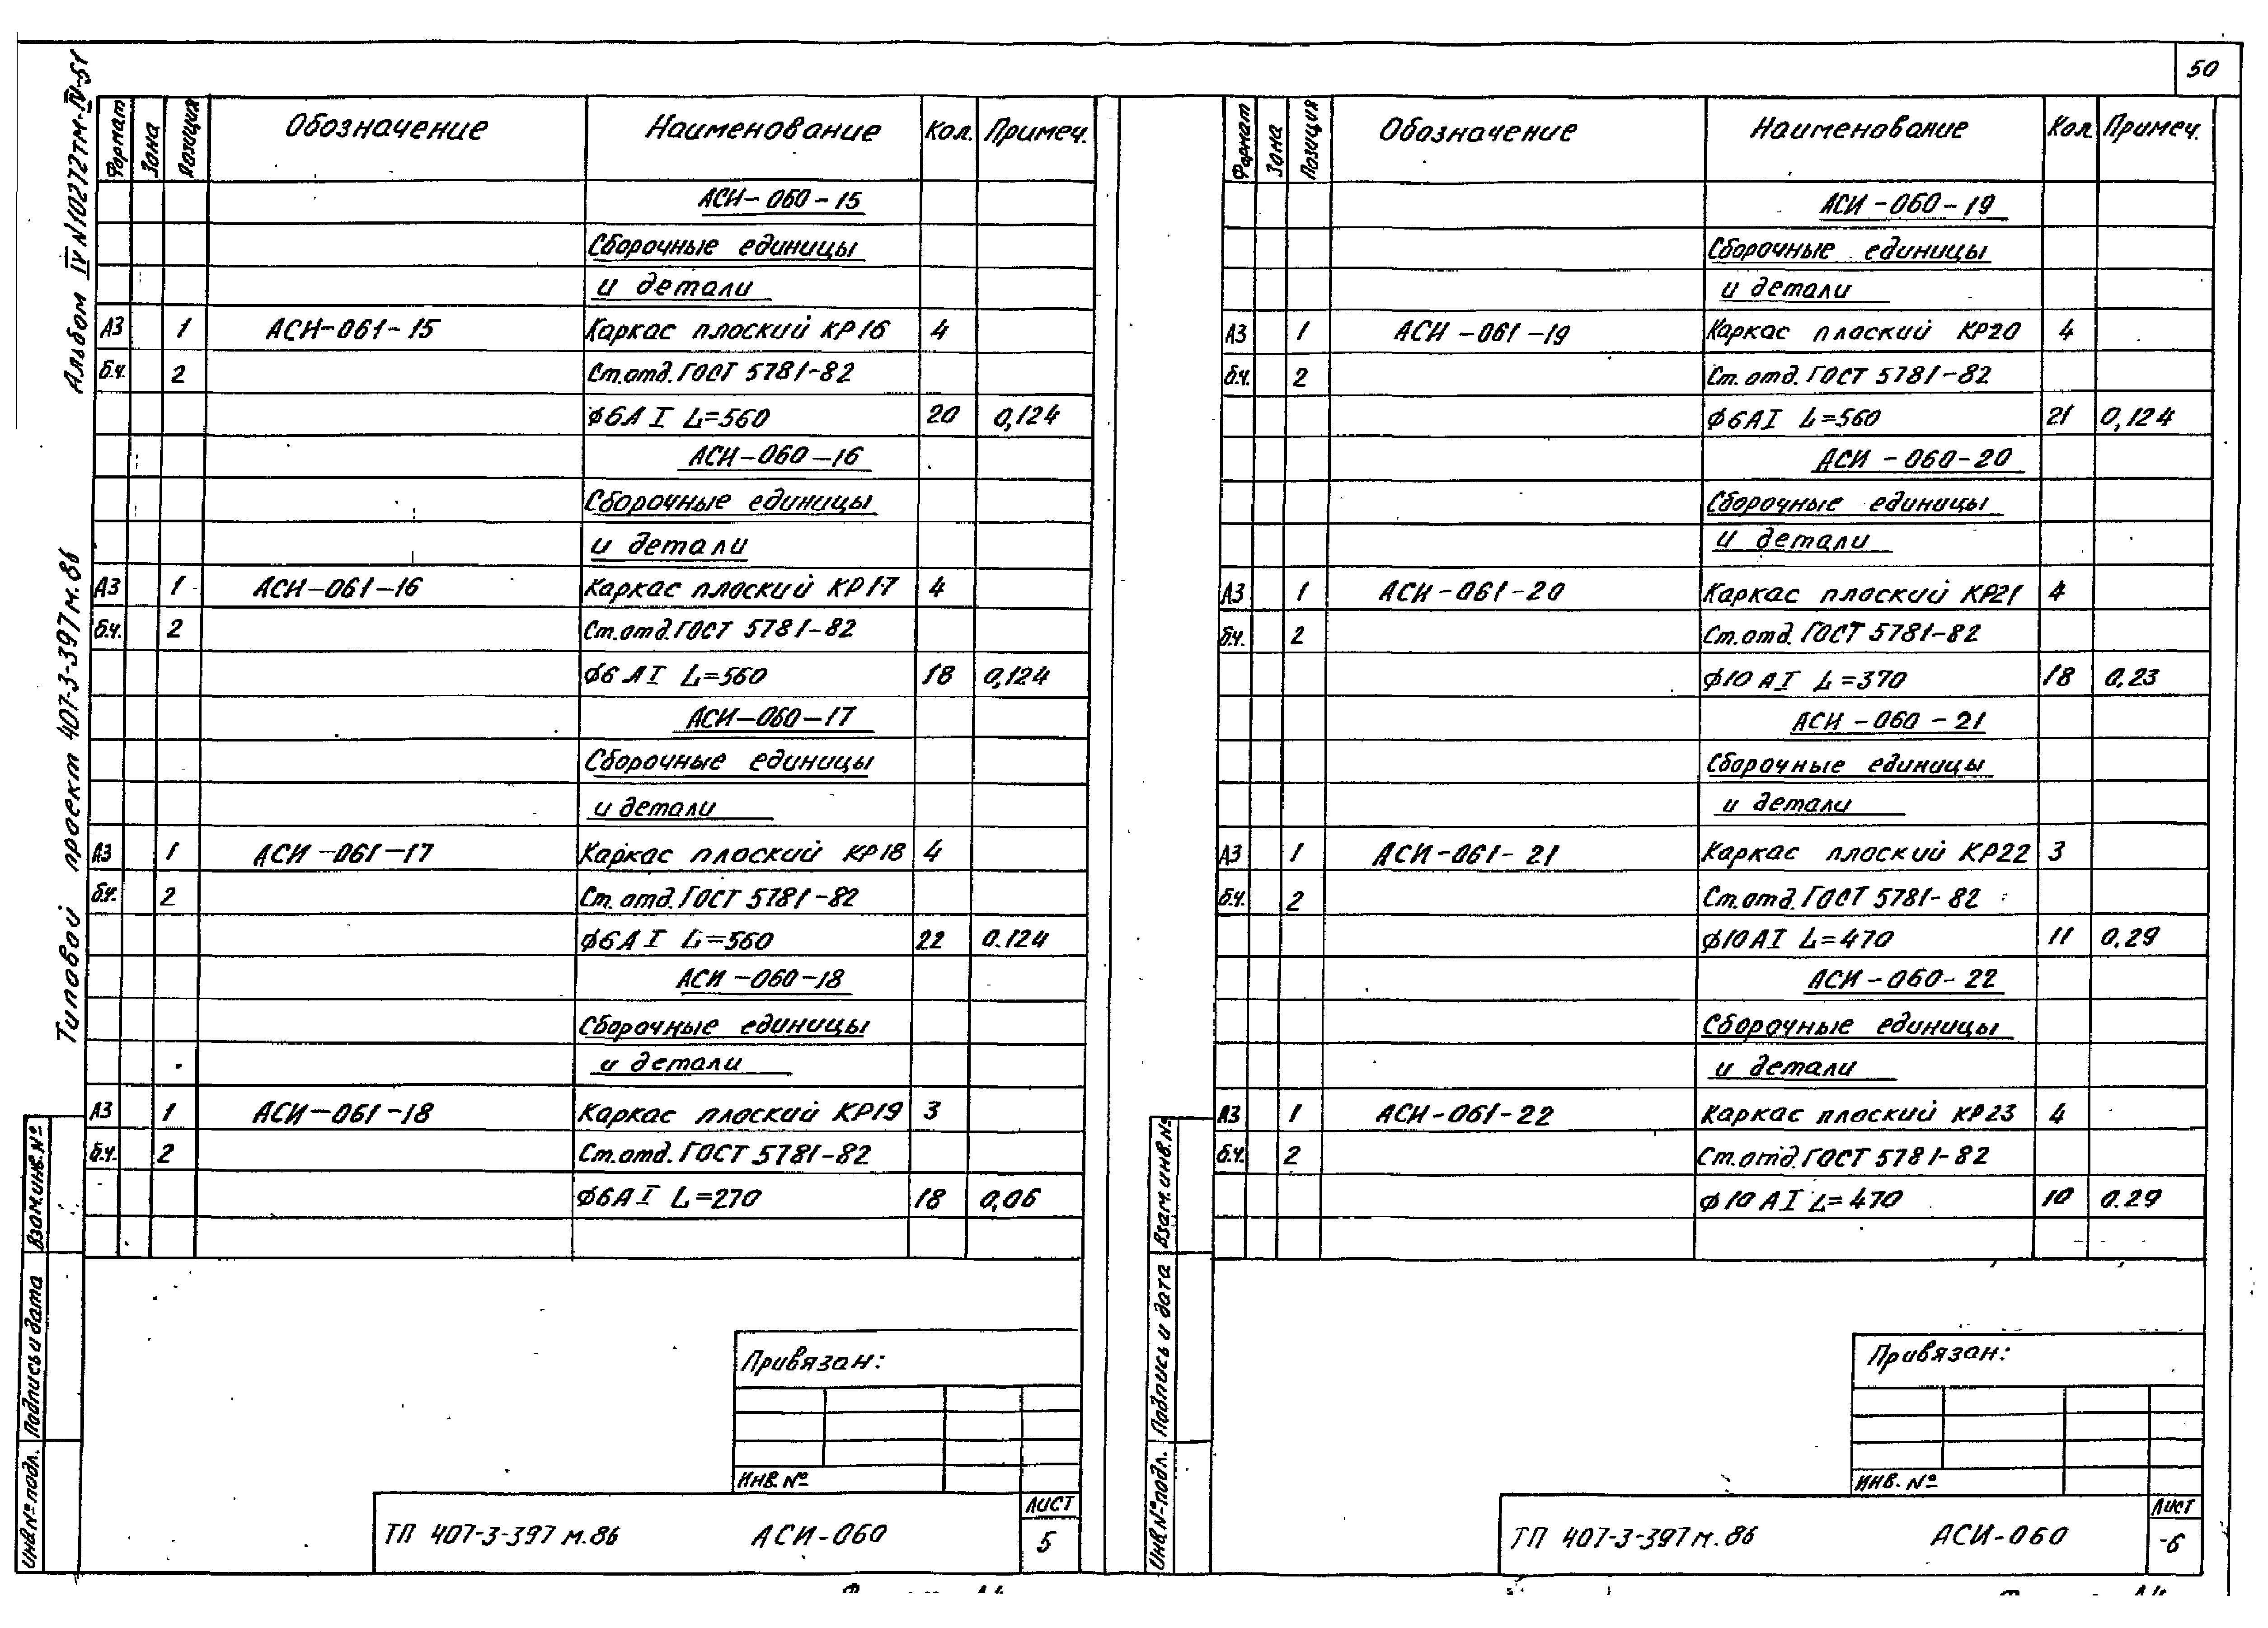 50
Альбом IV N10272тм-IV-51
Типовой проект 407-3-397м.86
Формат Зона Позиция Обозначение Наименование Кол. Примеч.
АСИ-060-15
Сборочные единицы
и детали
А3 1 АСИ-061-15 Каркас плоский КР16 4
б.ч. 2 Ст.отд.ГОСТ 5781-82
φ6АI L=560 20 0,124
АСИ-060-16
Сборочные единицы
и детали
А3 1 АСИ-061-16 Каркас плоский КР17 4
б.ч. 2 Ст.отд.ГОСТ 5781-82
φ6АI L=560 18 0,124
АСИ-060-17
Сборочные единицы
и детали
А3 1 АСИ-061-17 Каркас плоский КР18 4
б.ч. 2 Ст.отд.ГОСТ 5781-82
φ6АI L=560 22 0.124
АСИ-060-18
Сборочные единицы
и детали
А3 1 АСИ-061-18 Каркас плоский КР19 3
б.ч. 2 Ст.отд.ГОСТ 5781-82
φ6АI L=270 18 0,06
Взам.инв.№
Подпись и дата
Инв.№подл.
Привязан:
Инв.№
ТП 407-3-397м.86 АСИ-060
Лист
5
Формат Зона Позиция Обозначение Наименование Кол. Примеч.
АСИ-060-19
Сборочные единицы
и детали
А3 1 АСИ-061-19 Каркас плоский КР20 4
б.ч. 2 Ст.отд.ГОСТ 5781-82
φ6АI L=560 21 0,124
АСИ-060-20
Сборочные единицы
и детали
А3 1 АСИ-061-20 Каркас плоский КР21 4
б.ч. 2 Ст.отд.ГОСТ 5781-82
φ10АI L=370 18 0,23
АСИ-060-21
Сборочные единицы
и детали
А3 1 АСИ-061-21 Каркас плоский КР22 3
б.ч. 2 Ст.отд.ГОСТ 5781-82
φ10АI L=470 11 0.29
АСИ-060-22
Сборочные единицы
и детали
А3 1 АСИ-061-22 Каркас плоский КР23 4
б.ч. 2 Ст.отд.ГОСТ 5781-82
φ10АI L=470 10 0.29
Взам.инв.№
Подпись и дата
Инв.№подл.
Привязан:
Инв.№
ТП 407-3-397м.86 АСИ-060
Лист
6